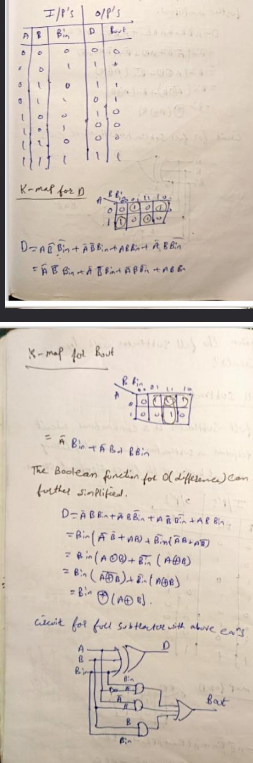 I/P'S O/P'S
A B Bin D Bout
0 0 0 0 0
0 0 1 1
0 1 0 1
0 1 1 0 1
1 0 0 1 0
1 0 1 0 0
1 1 0 0 0
1 1 1 1 1
K-map for D
A B Bin
0 0 1 0 1
1 1 0 1 0
D =
=
K-map for Bout
B Bin
A 00 01 11 10
0 0 1 1 1
1 0 0 1 0
= Ā Bin + Ā B + B Bin
The Boolean function for D(difference) can
further simplified.
D = Ā B̄ Bin + Ā B B̄in + A B̄ B̄in + A B Bin
= Bin (Ā B̄ + AB) + B̄in (ĀB + AB̄)
= Bin (A ⊙ B) + B̄in (A ⊕ B)
= Bin (A ⊕ B) + Bin (A ⊕ B)
= Bin ⊕ (A ⊕ B).
circuit for full subtractor with above eqn's
A D
B
Bin
Bin
A
A Bout
B
Bin